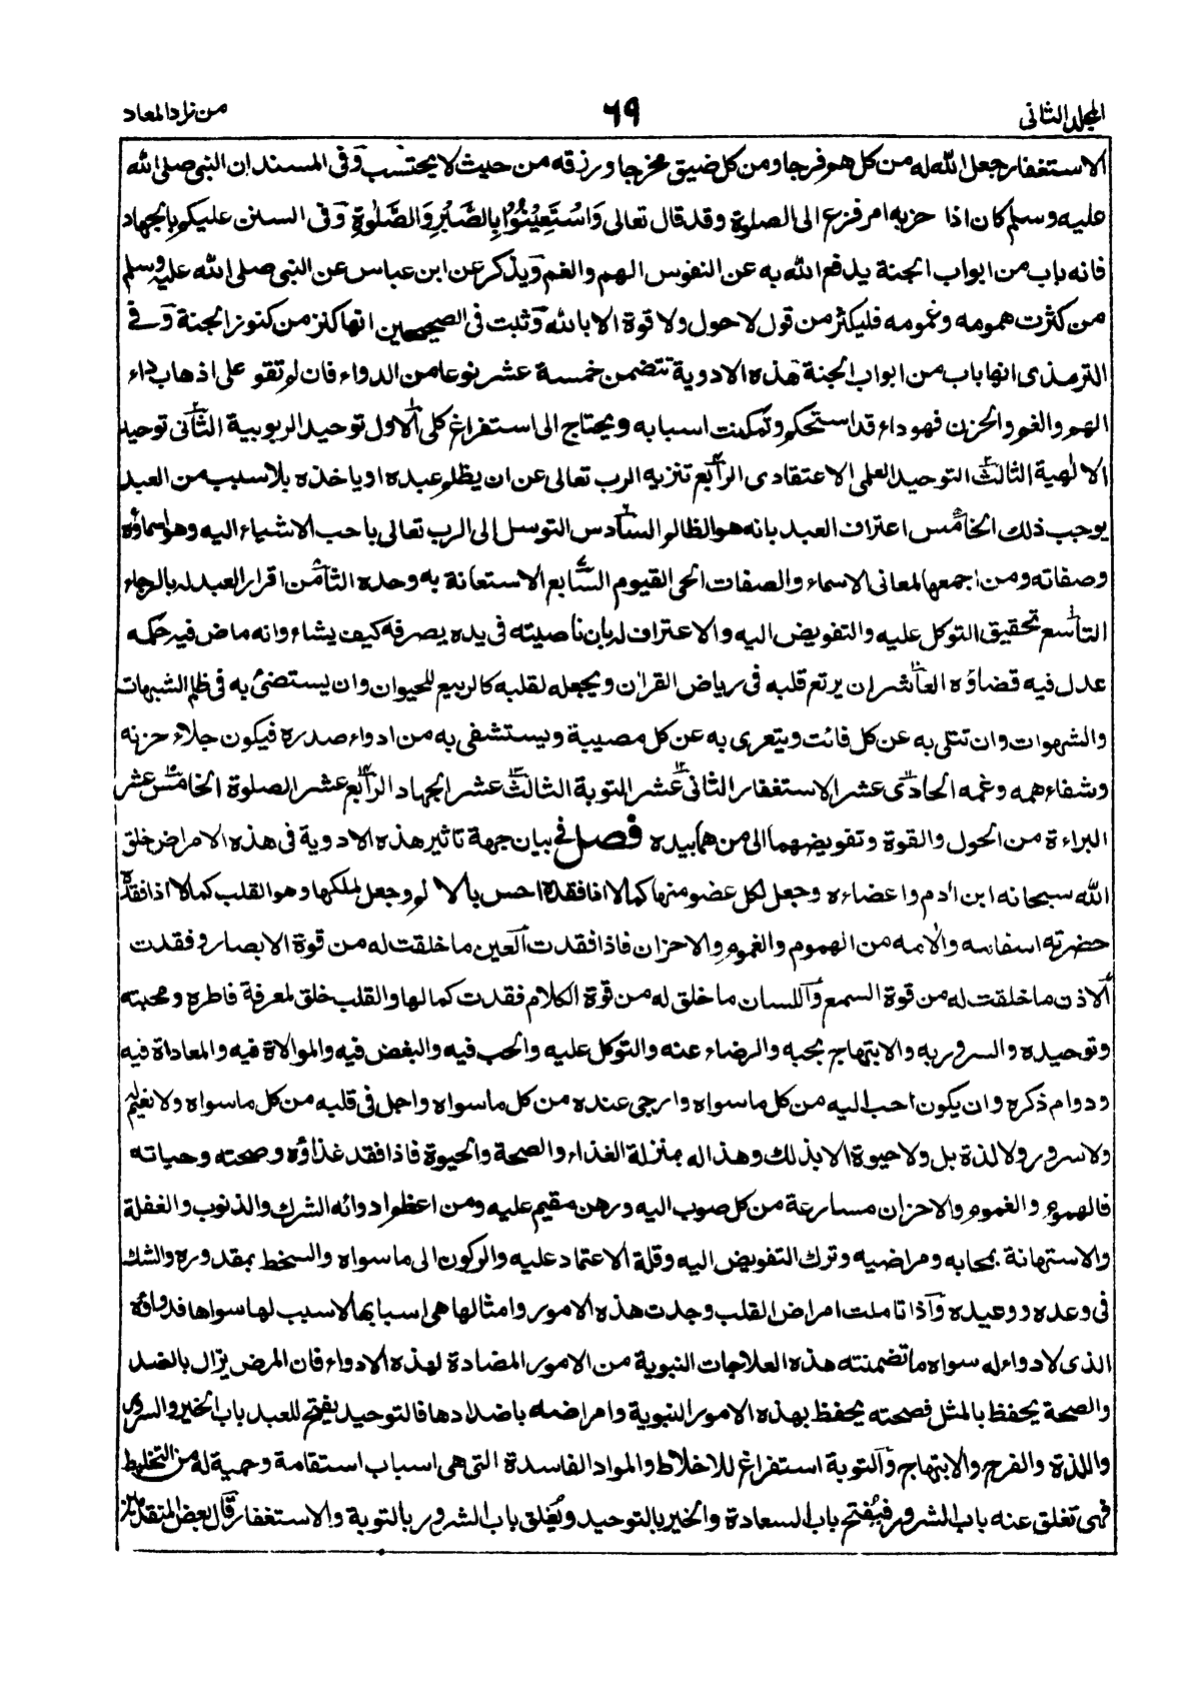 المجلد الثانى ٦٩ من زاد المعاد
الاستغفار جعل الله له من كل هم فرجا ومن كل ضيق مخرجا ورزقه من حيث لا يحتسب وَفى المسند ان النبى صلى الله
عليه وسلم كان اذا حزبه امر فزع الى الصلوة وقد قال تعالى وَاسْتَعِيْنُوْا بِالصَّبْرِ وَالصَّلٰوةِ وَفى السنن عليكم بالجهاد
فانه باب من ابواب الجنة يدفع الله به عن النفوس الهم والغم وَيذكر عن ابن عباس عن النبى صلى الله عليه وسلم
من كثرت همومه وغمومه فليكثر من قول لا حول ولا قوة الا بالله وَثبت فى الصحيحين انها كنز من كنوز الجنة وَفے
الترمذى انها باب من ابواب الجنة هَذه الادوية تتضمن خمسة عشر نوعا من الدواء فان لم تقو على اذهاب داء
الهم والغم والحزن فهو داء قد استحكم وتمكنت اسبابه ويحتاج الى استفراغ كلى اَلاول توحيد الربوبية الثانى توحيد
الالٰهية الثالث التوحيد العلمى الاعتقادى الرابع تنزيه الرب تعالى عن ان يظلم عبده او ياخذه بلا سبب من العبد
يوجب ذلك الخامس اعتراف العبد بانه هو الظالم السادس التوسل الى الرب تعالى باحب الاشياء اليه وهو اسماؤه
وصفاته ومن اجمعها لمعانى الاسماء والصفات الحى القيوم السابع الاستعانة به وحده الثامن اقرار العبد له بالرجاء
التاسع تحقيق التوكل عليه والتفويض اليه والاعتراف له بان ناصيته فى يده يصرفه كيف يشاء وانه ماض فيه حكمه
عدل فيه قضاؤه العاشر ان يرتع قلبه فى رياض القراٰن ويجعله لقلبه كالربيع للحيوان وان يستضئ به فى ظلم الشبهات
والشهوات وان تتلى به عن كل فائت ويتعزى به عن كل مصيبة ويستشفى به من ادواء صدره فيكون جلاء حزنه
وشفاء همه وغمه الحادى عشر الاستغفار الثانى عشر التوبة الثالث عشر الجهاد الرابع عشر الصلوة الخامس عشر
البراءة من الحول والقوة وتفويضهما الى من هما بيده فصل فى بيان جهة تاثير هذه الادوية فى هذه الامراض خلق
الله سبحانه ابن اٰدم واعضاءه وجعل لكل عضو منها كمالا اذا فقده احس بالالم وجعل لملكها وهو القلب كمالا اذا فقده
حضرته اسقامه والامه من الهموم والغموم والاحزان فاذا فقدت اَلعين ما خلقت له من قوة الابصار وفقدت
اَلاذن ما خلقت له من قوة السمع وَاللسان ما خلق له من قوة الكلام فقدت كمالها والقلب خلق لمعرفة فاطره ومحبته
وتوحيده والسرور به والابتهاج بحبه والرضاء عنه والتوكل عليه والحب فيه والبغض فيه والموالاة فيه والمعاداة فيه
ودوام ذكره وان يكون احب اليه من كل ما سواه وارجى عنده من كل ما سواه واجل فى قلبه من كل ما سواه ولا نعيم له
ولا سرور ولا لذة بل ولا حيوة الا بذلك وهذا له بمنزلة الغذاء والصحة والحيوة فاذا فقد غذاؤه وصحته وحياته
فالهموم والغموم والاحزان مسارعة من كل صوب اليه ورهن مقيم عليه ومن اعظم ادوائه الشرك والذنوب والغفلة
والاستهانة بمحابه ومراضيه وترك التفويض اليه وقلة الاعتماد عليه والركون الى ما سواه والسخط بمقدوره والشك
فى وعده ووعيده وَاذا تاملت امراض القلب وجدت هذه الامور وامثالها هى اسبابها لا سبب لها سواها فدواؤه
الذى لا دواء له سواه ما تضمنته هذه العلاجات النبوية من الامور المضادة لهذه الادواء فان المرض يزال بالضد
والصحة يحفظ بالمثل فصحته يحفظ بهذه الامور النبوية وامراضه باضدادها فالتوحيد يفتح للعبد باب الخير والسرور
واللذة والفرح والابتهاج وَالتوبة استفراغ للاخلاط والمواد الفاسدة التى هى اسباب استقامة وحمية له من التخليط
فهى تغلق عنه باب الشرور فيُفتح باب السعادة والخير بالتوحيد ويُغلق باب الشرور بالتوبة والاستغفار قَال بعض المتقدمين